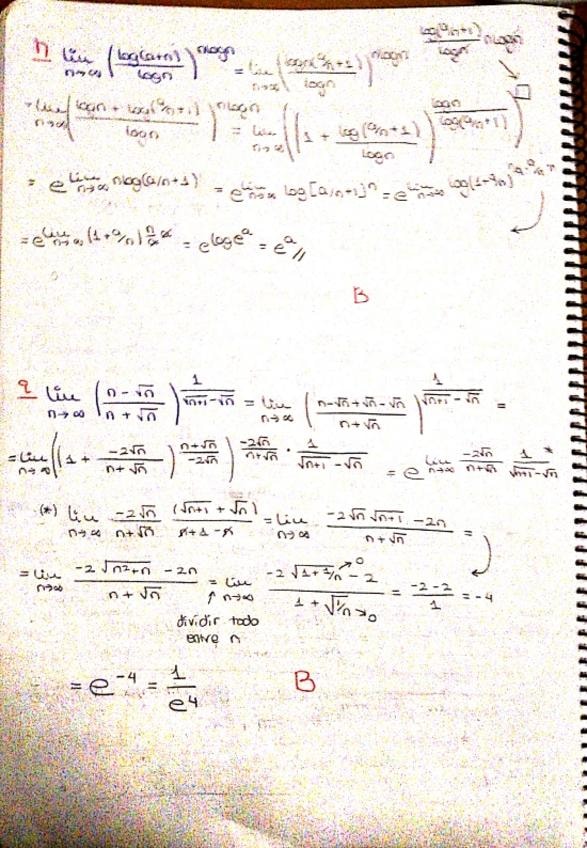 n lim n→∞ (log(a+n)/logn)^(nlogn) = lim n→∞ (logn(a/n+1)/logn)^(nlogn) log(a/n+1)/logn nlogn
= lim n→∞ ((logn + log(a/n+1))/logn)^(nlogn) = lim n→∞ ((1 + log(a/n+1)/logn)^(logn/log(a/n+1)))^□
= e^(lim n→∞ nlog(a/n+1)) = e^(lim n→∞ log[a/n+1]^n) = e^(lim n→∞ log(1+a/n)
= e^(lim n→∞ (1+a/n) n/a a) = e^(log e^a) = e^a //
B
q lim n→∞ ((n-√n)/(n+√n))^(1/(√n+1-√n)) = lim n→∞ ((n-√n+√n-√n)/(n+√n))^(1/(√n+1-√n)) =
= lim n→∞ ((1 + -2√n/(n+√n))^((n+√n)/-2√n))^(-2√n/(n+√n) · 1/(√n+1-√n)) = e^(lim n→∞ -2√n/(n+√n) 1/(√n+1-√n)) *
(*) lim n→∞ -2√n/(n+√n) (√n+1+√n)/(n+1-n) = lim n→∞ (-2√n√n+1-2n)/(n+√n) =
= lim n→∞ (-2√n²+n-2n)/(n+√n) = lim n→∞ (-2√1+1/n→0 -2)/(1+√1/n→0) = (-2-2)/1 = -4
dividir todo
entre n
= e^-4 = 1/e^4 B